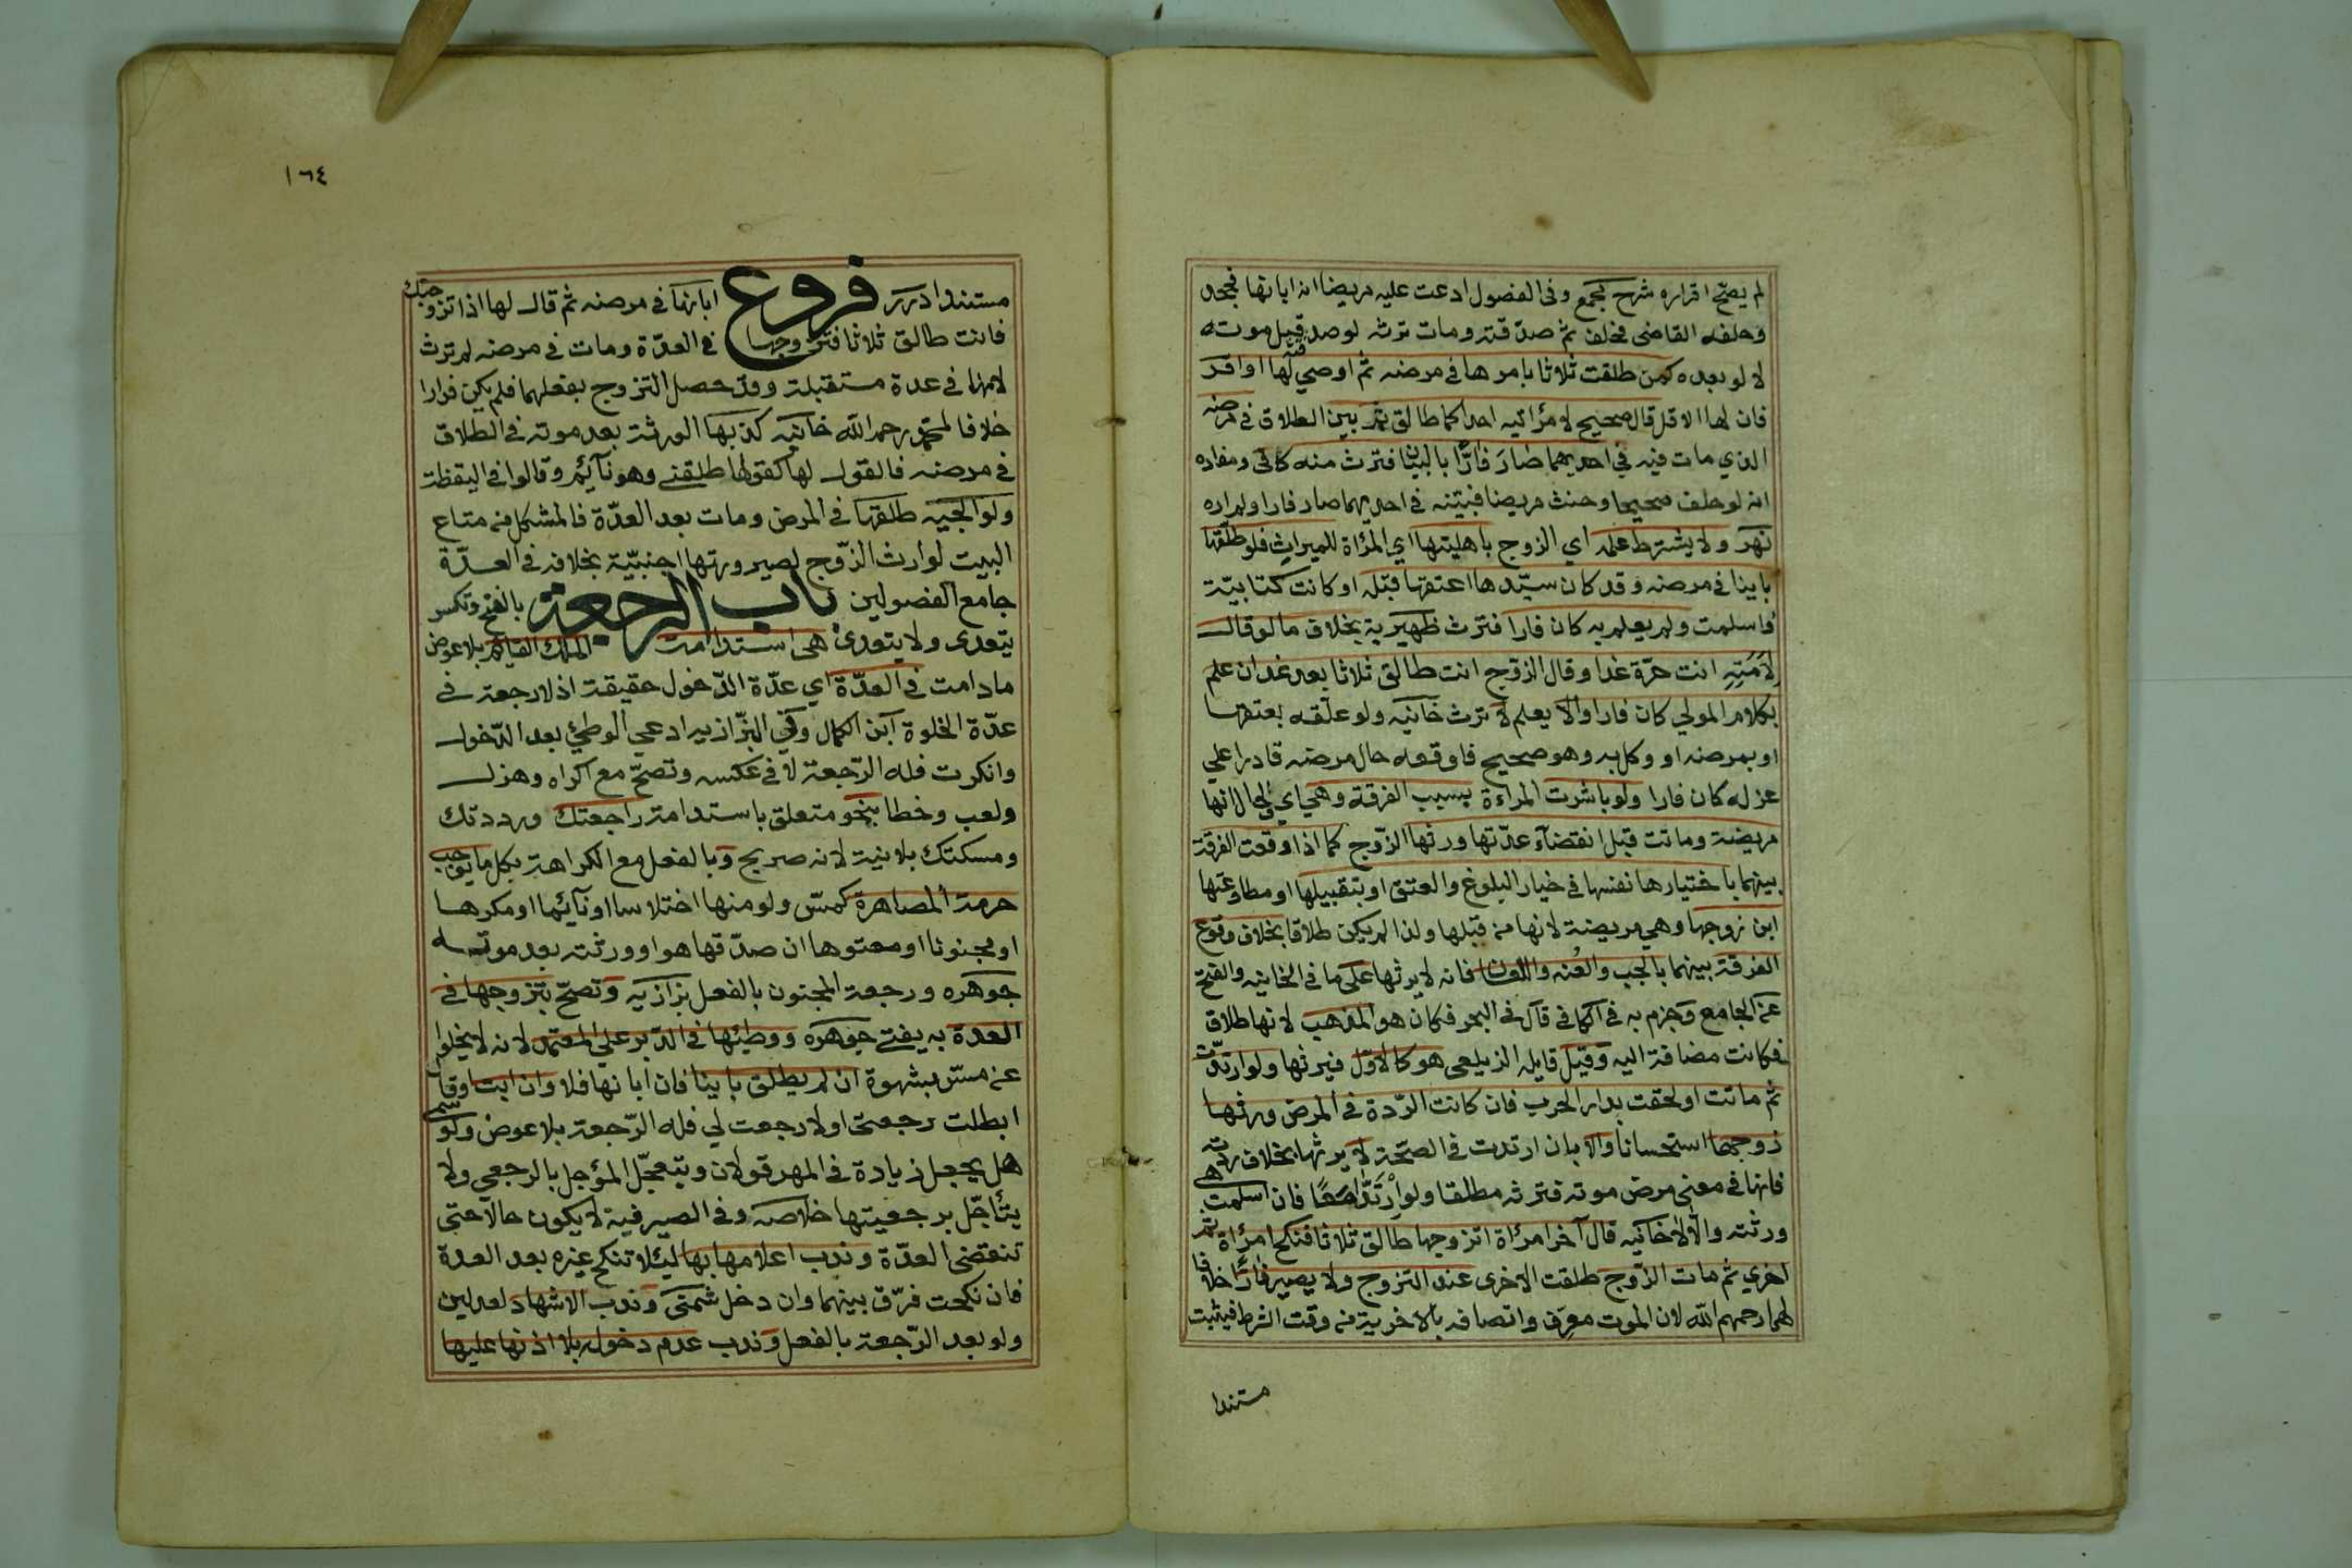 لم يصح اقراره شرح مجمع وفى الفصول ادعت عليه مريضا انه ابانها فجحد
وحلفه القاضى فحلف ثم صدقته ومات ترثه لو صدقته قبل موته
لا لو بعده كمن طلقت ثلاثا بامرها فى مرضه ثم اوصى لها او اقر
فان لها الاقل قال صحيح لامرأتيه احداكما طالق ثم بين الطلاق فى مرضه
الذي مات فيه في احديهما صار فارّا بالبيان فترث منه كافى ومفاده
انه لو حلف صحيحا وحنث مريضا فبيّنه فى احديهما صار فارا ولم اره
نهر ولا يشترط علمه اي الزوج باهليتها اي المرأة للميراث فلو طلّقها
باينا فى مرضه وقد كان سيّدها اعتقها قبله او كانت كتابيّة
فاسلمت ولم يعلم به كان فارا فترث ظهيرية بخلاف ما لو قال
لأمَتِهِ انت حرّة غدا وقال الزوج انت طالق ثلاثا بعد غد ان علم
بكلام المولي كان فارا والا يعلم لا ترث خانيه ولو علّقه بعتقها
او بمرضه او وكل به وهو صحيح فاوقعه حال مرضه قادرا علي
عزله كان فارا ولو باشرت المراءة بسبب الفرقة وهي اي والحال انها
مريضة وماتت قبل انقضآء عدّتها ورثها الزّوج كما اذا وقعت الفرقة
بينهما باختيارها نفسها فى خيار البلوغ والعتق او بتقبيلها او مطاوعتها
ابن زوجها وهي مريضة لانها من قبلها ولذا لم يكن طلاقا بخلاف وقوع
الفرقة بينهما بالجب والعُنه واللعان فانه لا يرثها على ما فى الخانيه والفتح
عن الجامع وجزم به فى الكافى قال فى البحر فكان هو المذهب لانها طلاق
فكانت مضافة اليه وقيل قايله الزيلعى هو كالاوّل فيرثها ولو ارتدّت
ثم ماتت او لحقت بدار الحرب فان كانت الرّدة فى المرض ورثها
زوجها استحسانا والا بان ارتدت فى الصّحة لا يرثها بخلاف ردته
فانها فى معنى مرض موته فترثه مطلقا ولو ارْتَدَّا معًا فان اسلمت هى
ورثته والا لا خانيه قال آخر امرأة اتزوجها طالق ثلاثا فنكح امرأة ثم
اخري ثم مات الزّوج طلقت الاخرى عند التزوج ولا يصير فارًّا خلافا
لهما رحمهم الله لان الموت معرّف واتصافه بالاخرية من وقت الشرط فيثبت
مستندا
١٦٤
مستندا درر فروع ابانها فى مرضه ثم قال لها اذا تزوجتك
فانت طالق ثلاثا فتزوجها فى العدّة ومات فى مرضه لم ترث
لانها فى عدة مستقبلة وقد حصل التزوج بفعلهما فلم يكن فرارا
خلافا لمحمّد رحمه الله خانيه كذبها الورثة بعد موته فى الطلاق
فى مرضه فالقول لها كقولها طلقنى وهو نآئم وقالوا فى اليقظة
ولوالجيه طلقها فى المرض ومات بعد العدّة فالمشكل من متاع
البيت لوارث الزّوج لصيرورتها اجنبيّة بخلافه فى العدّة
جامع الفصولين باب الرجعة بالفتح وتكسر
يتعدى ولا يتعدى هى استدامة الملك القائم بلا عوض
مادامت فى العدّة اي عدّة الدّخول حقيقة اذ لا رجعة فى
عدّة الخلوة ابن الكمال وفي البزّازيه ادعى الوطئ بعد الدّخول
وانكرت فله الرّجعة لا فى عكسه وتصحّ مع اكراه وهزل
ولعب وخطا بنحو متعلق باستدامة راجعتك ورددتك
ومسكتك بلا نية لانه صريح وبالفعل مع الكراهة بكل ما يوجب
حرمة المصاهرة كمسّ ولو منها اختلاسا او نآئما او مكرها
او مجنونا او معتوها ان صدّقها هو او ورثته بعد موته
جوهره ورجعة المجنون بالفعل بزازيه وتصحّ بتزوجها فى
العدة به يفتى جوهره ووطئها فى الدّبر على المعتمد لانه لا يخلوا
عن مسّ بشهوة ان لم يطلق باينا فان ابانها فلا وان ابت او قال
ابطلت رجعتى او لا رجعت لي فله الرّجعة بلا عوض ولو سمى
هل يجعل زيادة فى المهر قولان ويتعجّل المؤجل بالرجعى ولا
يتأجّل برجعيتها خلاصه وفى الصيرفية لا يكون حالا حتى
تنقضى العدّة وندب اعلامها بها ليئلا تنكح غيره بعد العدة
فان نكحت فرّق بينهما وان دخل شمنى وندب الاشهاد لعدلين
ولو بعد الرّجعة بالفعل وندب عدم دخوله بلا اذنها عليها